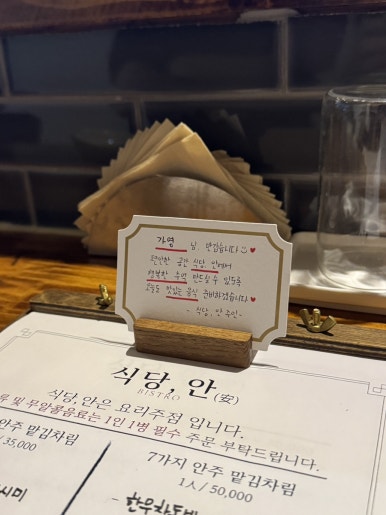 가영 님, 반갑습니다
편안한 공간 식당, 안에서
행복한 추억 만드실 수 있도록
오늘도 맛있는 음식 준비하겠습니다
- 식당, 안 주인 -
식당, 안(安)
BISTRO
식당,안은 요리주점 입니다.
류 및 무알콜음료는 1인 1병 필수 주문 부탁드립니다.
안주 맡김차림
/ 35,000
7가지 안주 맡김차림
1人 / 50,000
시미